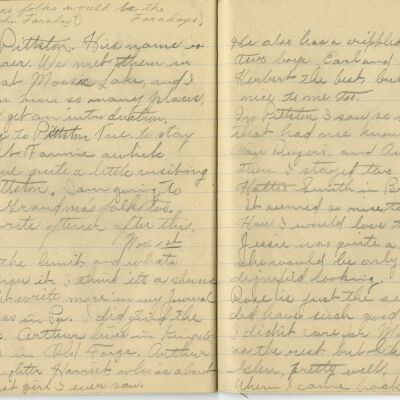 is folks would be the
Faradays)
Pittston. His name is
We met them in
at Mouse Lake, and I
him so many places,
get an introduction.
to Pittston Tue. to stay
Fannie awhile
quite a little visiting
I am going to
Grandma's folks too.
write oftener after this.
Nov. 1st
the limit and whats
know it. I think its a shame
write more in my journal
as in Pa. I did find the
Arthur lives in Kingston
in Old Forge. Arthur
Harriet who is about
girl I ever saw.
He also has a crippled
two boys. Earl and
Herbert the best, but
nice to me too.
In Pittston I saw so
that had once known
and
then I stayed two
Hattie Smith in
it seemed so nice to
How I would love t
Jessie was quite a
she would be only
dignified looking.
Rose is just the sa
did have such good
I didn't care for
as the rest but like
pretty well.
When I came back